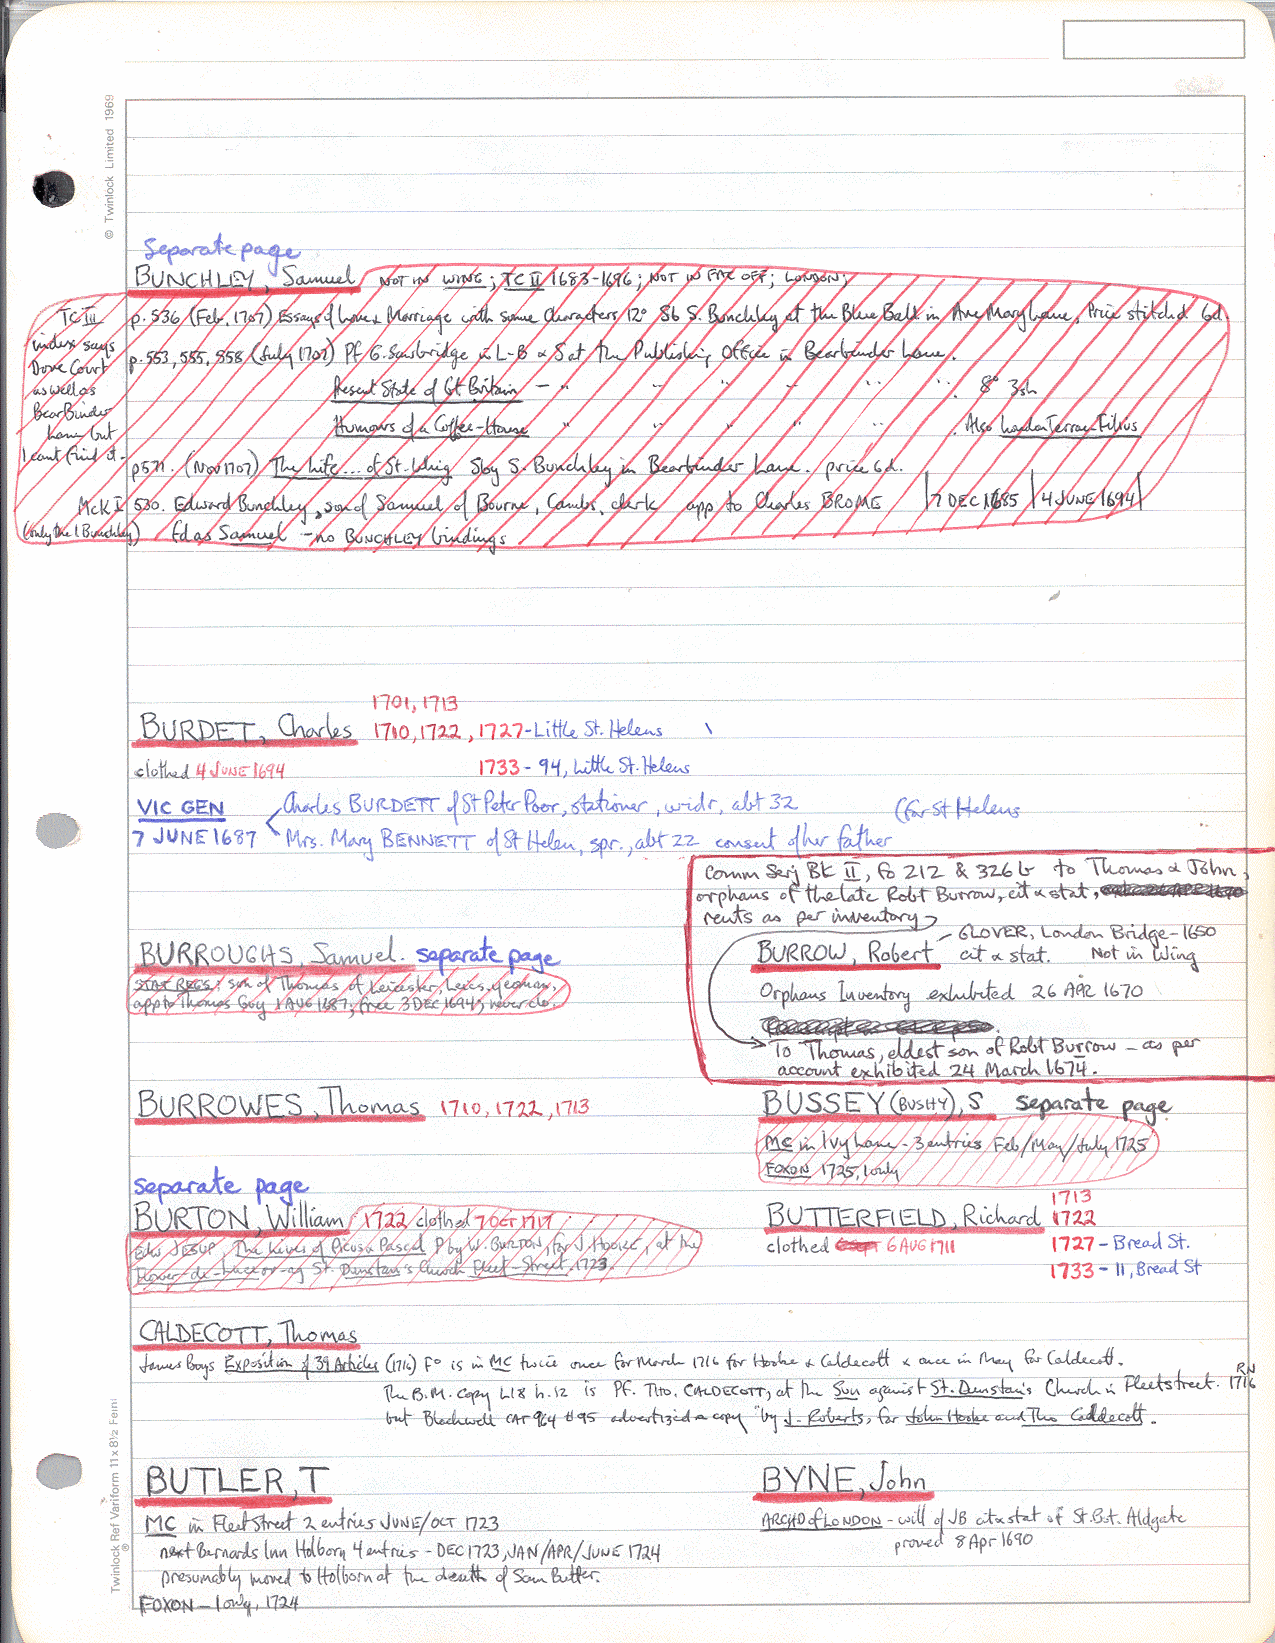 © Twinlock Limited 1969
Separate page
BUNCHLEY, Samuel NOT IN WING; TC II 1683-1696; NOT IN FAC OFF; LONDON;
TC III index says Dove Court as well as BearBinder Lane but I cant find it -
p.536 (Feb, 1707) Essays of Love & Marriage with some Characters 12° Sb S. Bunchley at the Blue Ball in Ave Mary Lane, Price stitch'd 6d.
p.553, 555, 558 (July 1707) Pf G. Sawbridge in L-B & S at the Publishing Office in Bearbinder Lane.
Present State of Gt Britain - " " " " " " 8° 3sh
Humours of a Coffee-House " " " " " . Also London Terrae-Filius
p571. (Nov 1707) The Life... of St. Whig Sby S. Bunchley in Bearbinder Lane. price 6d.
McK I 530. Edward Bunchley, son of Samuel of Bourne, Cambs, clerk app to Charles BROME | 7 DEC 1685 | 4 JUNE 1694 |
(only the 1 Bunchley) Ed as Samuel - no BUNCHLEY bindings
1701, 1713
BURDET, Charles 1710, 1722, 1727-Little St. Helens
clothed 4 JUNE 1694 1733 - 94, Little St. Helens
VIC GEN Charles BURDETT of St Peter Poor, stationer, widr, abt 32 (for St Helens
7 JUNE 1687 Mrs. Mary BENNETT of St Helen, spr., abt 22 consent of her father
Comm Serj Bk II, fo 212 & 326b to Thomas & John,
orphans of the late Robt Burrow, cit & stat,
rents as per inventory
GLOVER, London Bridge - 1650
BURROW, Robert cit & stat. Not in Wing
Orphans Inventory exhibited 26 APR 1670
To Thomas, eldest son of Robt Burrow - as per
account exhibited 24 March 1674.
BURROUGHS, Samuel. separate page
STAT REGS: son of Thomas of Leicester, Leics, yeoman,
app to Thomas Guy 1 AUG 1687, free 3 DEC 1694, never clo.
BURROWES, Thomas 1710, 1722, 1713
BUSSEY (BUSHY), S separate page
MC in Ivy Lane - 3 entries Feb/May/July 1725
FOXON 1725, 1 only
separate page
BURTON, William 1722 clothed 7 OCT 1717
Edw JESUP, The Lives of Picus & Pascal P by W. BURTON, for J. HOOKE, at the
Flower-de-luce ov-ag St. Dunstan's Church Fleet-Street, 1723
1713
BUTTERFIELD, Richard 1722
clothed 6 AUG 1711 1727 - Bread St.
1733 - 11, Bread St
CALDECOTT, Thomas
James Boys Exposition of 39 Articles (1716) F° is in MC twice once for March 1716 for Hooke & Caldecott & once in May for Caldecott.
The B.M. copy L18 h.12 is PF. THO. CALDECOTT, at the Sun against St. Dunstan's Church in Fleetstreet. 1716 RN
but Blackwell CAT 964 #95 advertized a copy "by J. Roberts, for John Hooke and Tho Caldecott.
BUTLER, T
MC in Fleet Street 2 entries JUNE/OCT 1723
next Bernards Inn Holborn 4 entries - DEC 1723, JAN/APR/JUNE 1724
presumably moved to Holborn at the death of Sam Butler.
FOXON - 1 only, 1724
BYNE, John
ARCHD of LONDON - will of JB cit & stat of St. Bot. Aldgate
proved 8 Apr 1690
Twinlock Ref Variform 11 x 8½ Feint